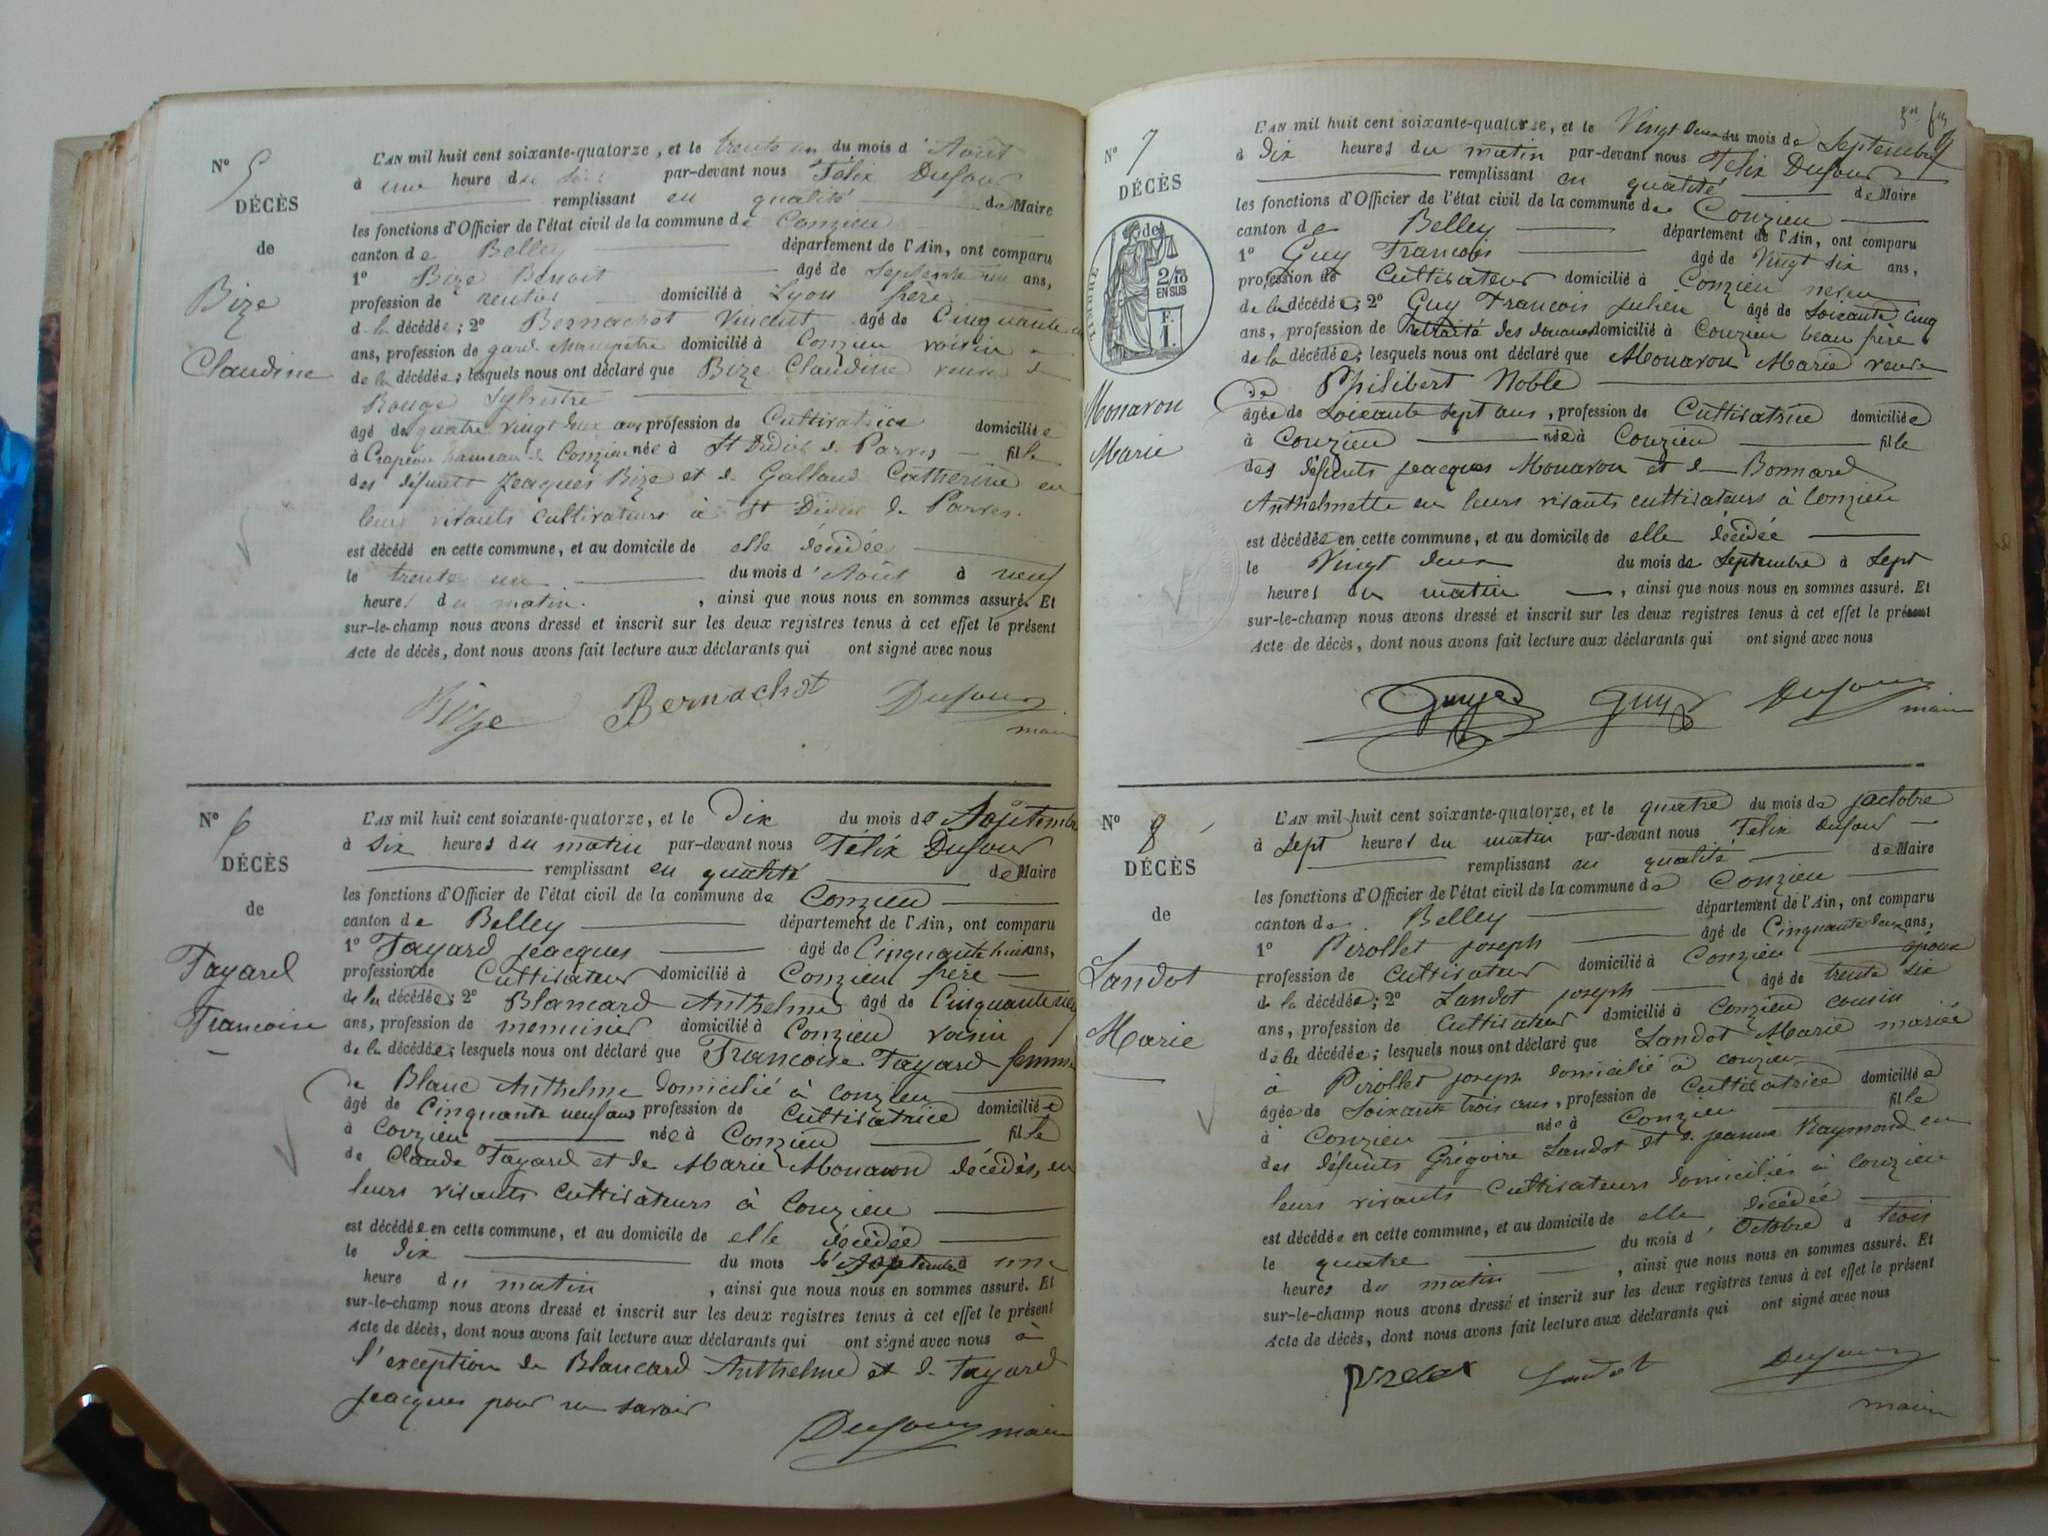 N° 5
DÉCÈS
de
Bize
Claudine
L'AN mil huit cent soixante-quatorze, et le trente un du mois d'Août
à une heure du soir par-devant nous Félix Dufour
remplissant en qualité de Maire
les fonctions d'Officier de l'état civil de la commune de Conzieu
canton de Belley département de l'Ain, ont comparu
1° Bize Benoit âgé de septante un ans,
profession de rentier domicilié à Lyon frère
de la décédée; 2° Bernachot Vincent âgé de Cinquante
ans, profession de gard champêtre domicilié à Conzieu voisin
de la décédée; lesquels nous ont déclaré que Bize Claudine veuve de
Rouge Sylvestre
âgé de quatre vingt ans profession de Cultivatrice domicilié e
à Crapéou hameau de Conzieu née à St Didier de Parves fille
des défunts Jeacques Bize et de Galland Catherine en
leurs vivants cultivateurs à St Didier de Parves.
est décédé en cette commune, et au domicile de elle décédée
le trente un du mois d'Août à neuf
heures du matin. , ainsi que nous nous en sommes assuré. Et
sur-le-champ nous avons dressé et inscrit sur les deux registres tenus à cet effet le présent
Acte de décès, dont nous avons fait lecture aux déclarants qui ont signé avec nous
Bize Bernachot Dufour
maire
N° 6
DÉCÈS
de
Fayard
Francoise
L'AN mil huit cent soixante-quatorze, et le Dix du mois de Septembre
à six heures du matin par-devant nous Félix Dufour
remplissant en qualité de Maire
les fonctions d'Officier de l'état civil de la commune de Conzieu
canton de Belley département de l'Ain, ont comparu
1° Fayard Jeacques âgé de Cinquante huit ans,
profession de Cultivateur domicilié à Conzieu frère
de la décédée; 2° Blancard Anthelme âgé de Cinquante
ans, profession de menuisier domicilié à Conzieu voisin
de la décédée; lesquels nous ont déclaré que Francoise Fayard femme
de Blanc Anthelme domicilié à conzieu
âgé de Cinquante neuf ans profession de Cultivatrice domicilié e
à Conzieu née à Conzieu fille
de Claude Fayard et de Marie Monavon décédés, en
leurs vivants cultivateurs à Conzieu
est décédée en cette commune, et au domicile de elle décédée
le dix du mois de Septembre à une
heure du matin , ainsi que nous nous en sommes assuré. Et
sur-le-champ nous avons dressé et inscrit sur les deux registres tenus à cet effet le présent
Acte de décès, dont nous avons fait lecture aux déclarants qui ont signé avec nous à
l'exception de Blancard Anthelme et de Fayard
Jeacques pour ne savoir
Dufour maire
N° 7
DÉCÈS
de
TIMBRE
2/10
EN SUS
F.
1.
Monavon
Marie
L'AN mil huit cent soixante-quatorze, et le Vingt deux du mois de Septembre
à dix heures du matin par-devant nous Félix Dufour
remplissant en qualité de Maire
les fonctions d'Officier de l'état civil de la commune de Conzieu
canton de Belley département de l'Ain, ont comparu
1° Guy Francois âgé de Vingt six ans,
profession de Cultivateur domicilié à Conzieu neveu
de la décédée; 2° Guy Francois Julien âgé de soixante cinq
ans, profession de retraité des douanes domicilié à Conzieu beau frère
de la décédée; lesquels nous ont déclaré que Monavon Marie veuve
de Philibert Noble
âgée de soixante sept ans, profession de Cultivatrice domicilié e
à Conzieu née à Conzieu fille
des défunts Jeacques Monavon et de Bonnard
Anthelmette en leurs vivants cultivateurs à Conzieu
est décédée en cette commune, et au domicile de elle décédée
le Vingt deux du mois de Septembre à sept
heures du matin , ainsi que nous nous en sommes assuré. Et
sur-le-champ nous avons dressé et inscrit sur les deux registres tenus à cet effet le présent
Acte de décès, dont nous avons fait lecture aux déclarants qui ont signé avec nous
Guy Dufour
maire
N° 8
DÉCÈS
de
Landot
Marie
L'AN mil huit cent soixante-quatorze, et le quatre du mois de octobre
à Sept heures du matin par-devant nous Félix Dufour
remplissant en qualité de Maire
les fonctions d'Officier de l'état civil de la commune de Conzieu
canton de Belley département de l'Ain, ont comparu
1° Pirollet Joseph âgé de Cinquante deux ans,
profession de Cultivateur domicilié à Conzieu époux
de la décédée; 2° Landot Joseph âgé de trente six
ans, profession de Cultivateur domicilié à Conzieu cousin
de la décédée; lesquels nous ont déclaré que Landot Marie mariée
à Pirollet Joseph domicilié à conzieu
âgée de Soixante trois ans, profession de Cultivatrice domicilié e
à Conzieu née à Conzieu fille
des défunts Grégoire Landot et de Jeanne Raymond en
leurs vivants Cultivateurs domiciliés à Conzieu
est décédée en cette commune, et au domicile de elle décédée
le quatre du mois d'Octobre à trois
heures du matin , ainsi que nous nous en sommes assuré. Et
sur-le-champ nous avons dressé et inscrit sur les deux registres tenus à cet effet le présent
Acte de décès, dont nous avons fait lecture aux déclarants qui ont signé avec nous
Landot Dufour
maire